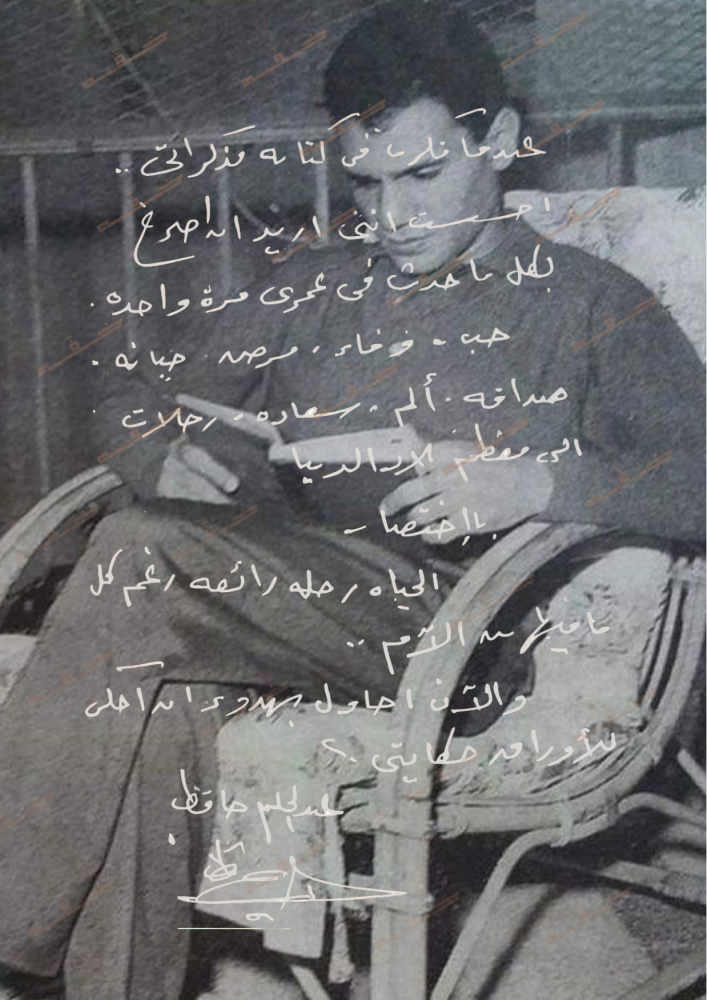 عندما فكرت في كتابه مذكراتى ..
احسست اننى اريد ان اصرخ
بكل ما حدث في عمرى مرة واحده .
حب - وفاء . مرض . خيانه .
صداقه . ألم . سعاده . رحلات
الى معظم بلاد الدنيا
بالإختصار -
الحياه رحله رائعه رغم كل
ما فيها من الآم ..
والآن احاول بهدوء ان احكى
للأوراق حكايتى ..
عبدالحليم حافظ